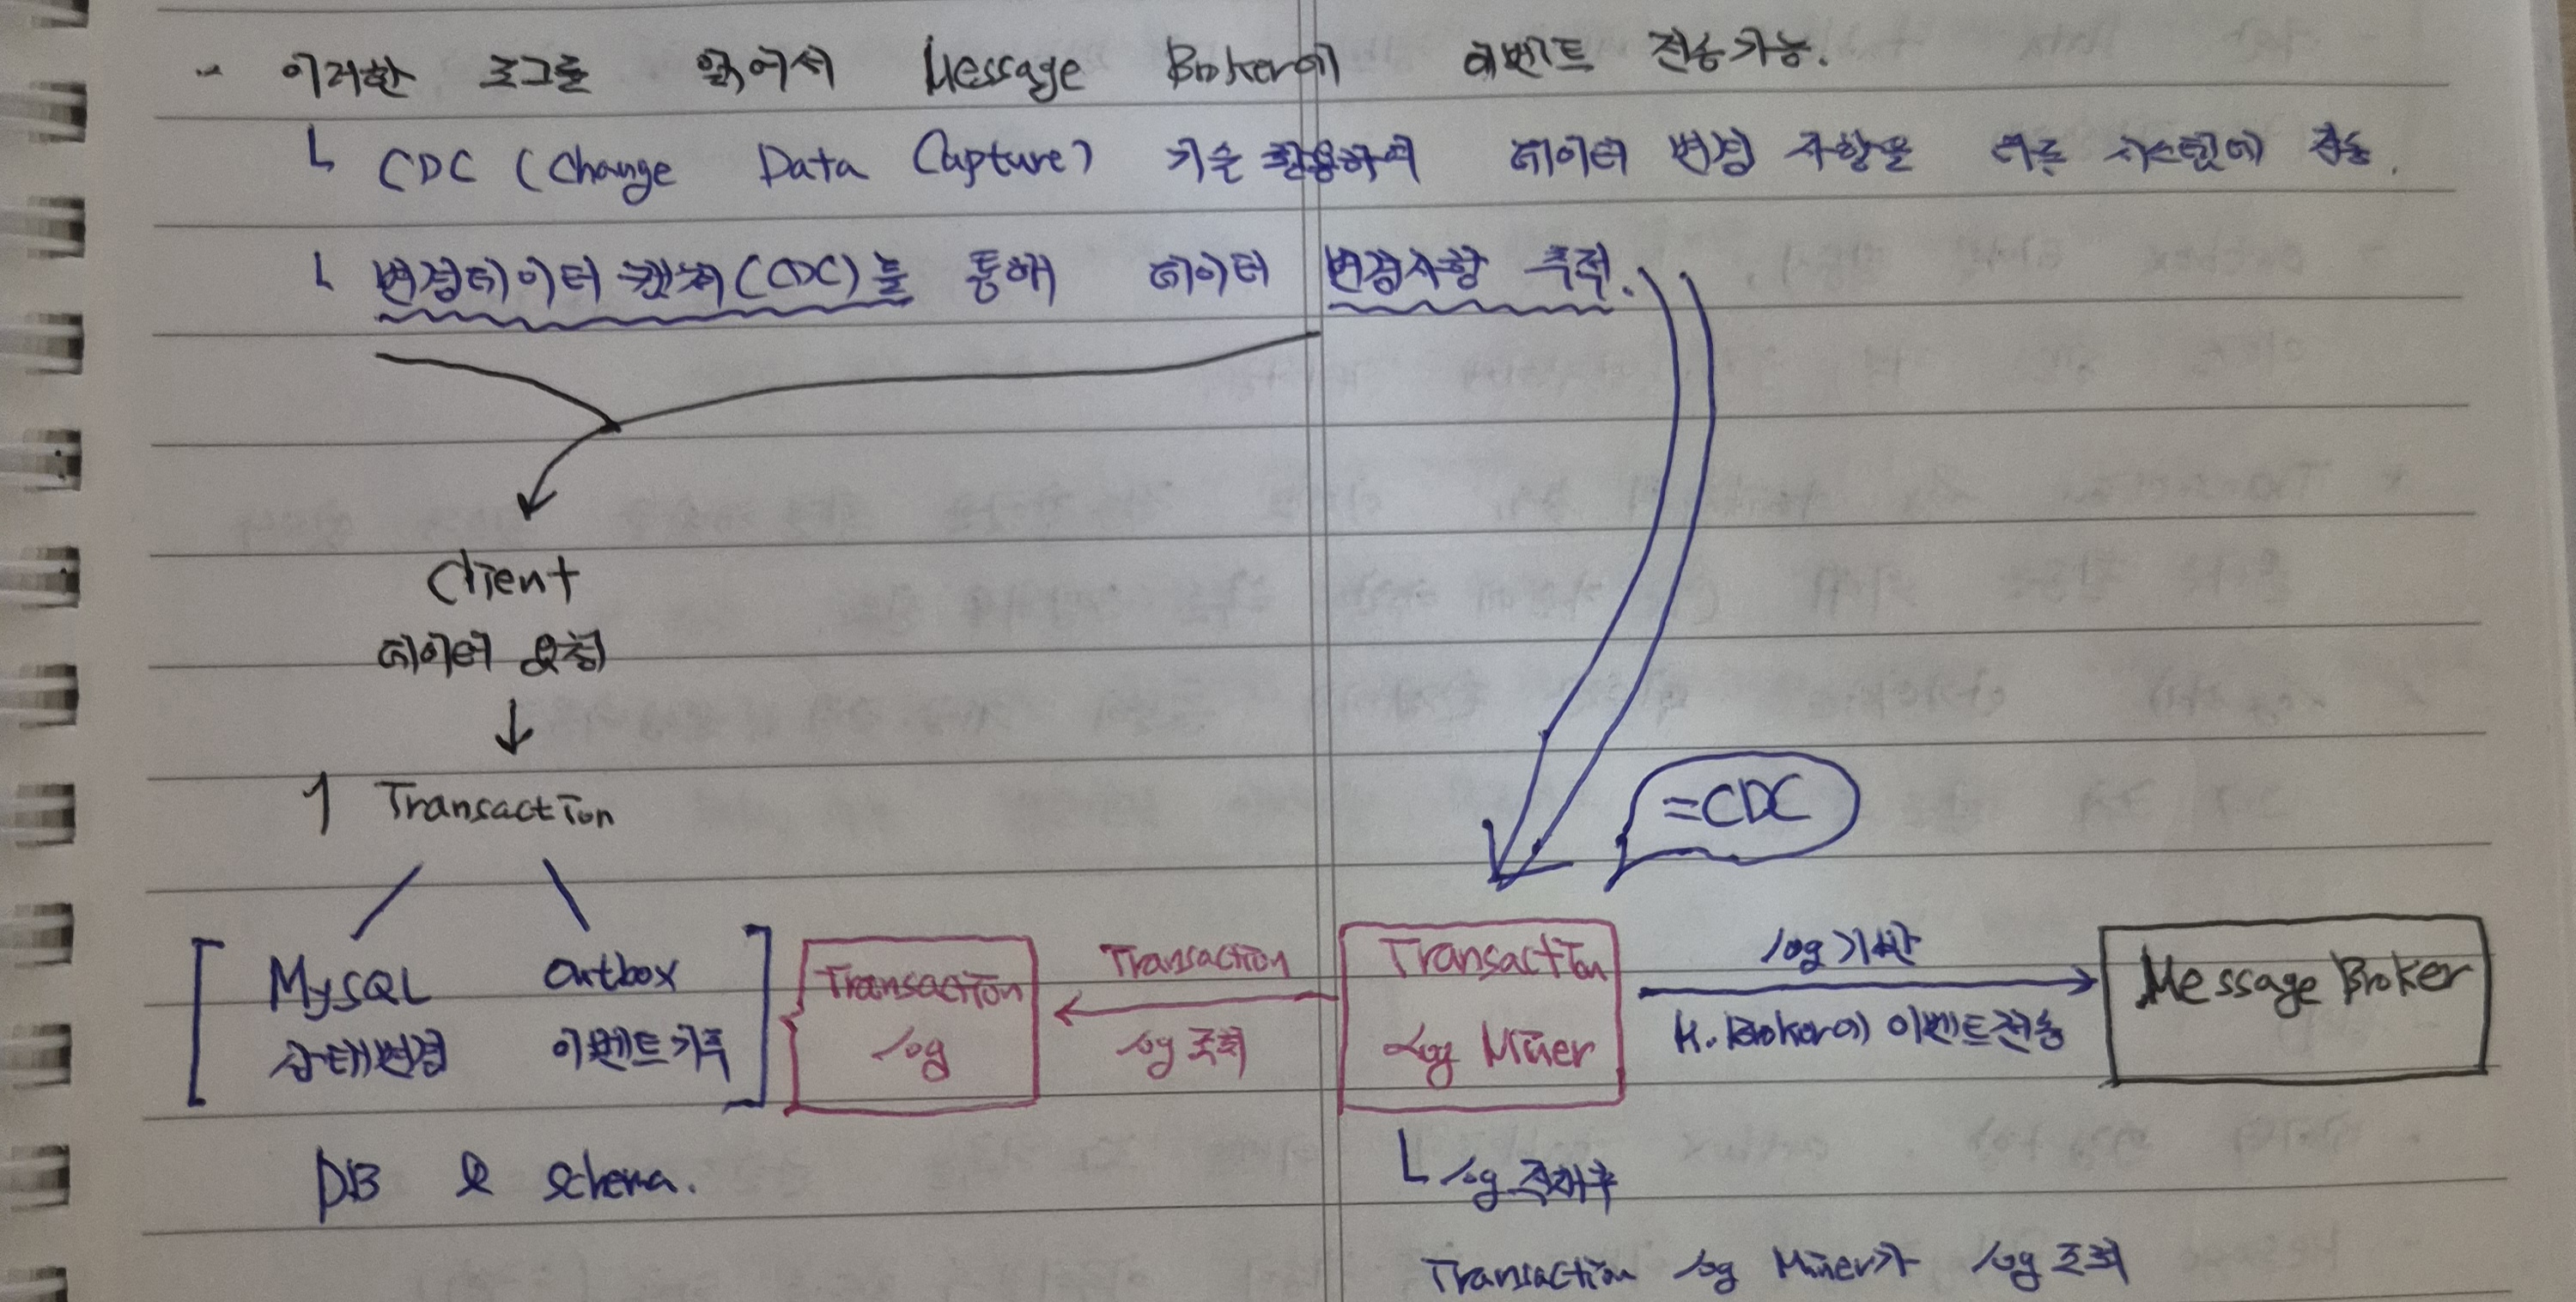 이러한 로그를 읽어서 Message Broker에 이벤트 전송가능.
└ CDC (Change Data Capture) 기술 활용하여 데이터 변경 사항을 다른 시스템에 전송.
└ 변경데이터 캡처(CDC)를 통해 데이터 변경사항 추적.
Client
데이터 요청
↓
1 Transaction
=CDC
MySQL
상태변경
outbox
이벤트기록
DB & schema.
Transaction
log
Transaction
log 조회
Transaction
Log Miner
log 기반
M. Broker에 이벤트전송
Message Broker
└ log 적재후
Transaction log Miner가 log 조회